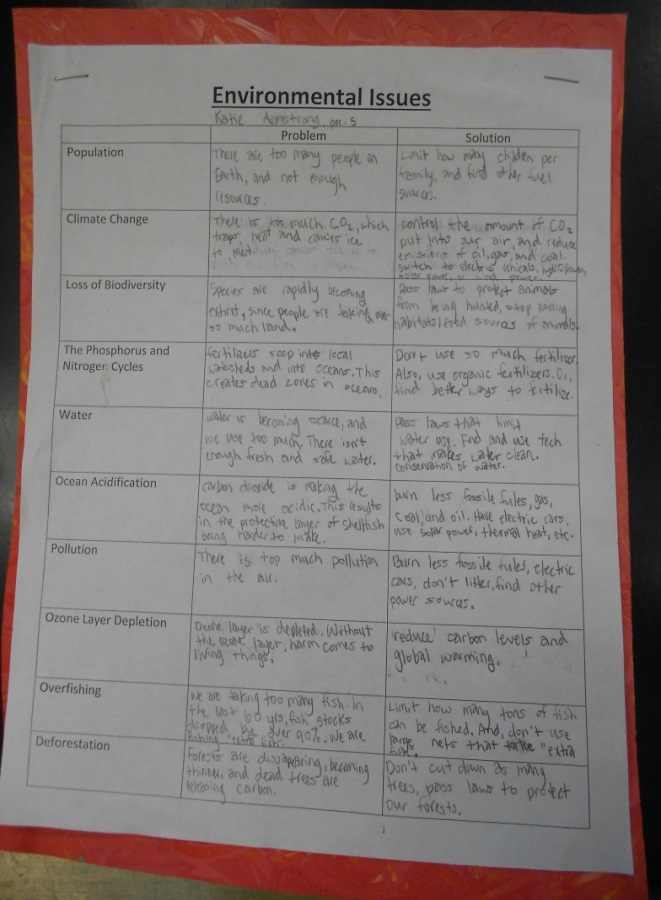 Environmental Issues
Katie Armstrong per. 5
Problem Solution
Population
There are too many people on
Earth, and not enough
resources.
Limit how many children per
family, and find other fuel
sources.
Climate Change
There is too much CO2, which
traps heat and causes ice
to
control the amount of CO2
put into our air, and reduce
emissions of oil, gas, and coal.
switch to electric
Loss of Biodiversity
Species are rapidly becoming
extinct, since people are taking over
so much land.
Pass laws to protect animals
from being hunted, stop
habitats/food sources of animals.
The Phosphorus and
Nitrogen Cycles
fertilizers seep into local
watersheds and into oceans. This
creates dead zones in oceans.
Don't use so much fertilizer.
Also, use organic fertilizers. Or,
find better ways to fertilize.
Water
water is becoming scarce, and
we use too much. There isn't
enough fresh and safe water.
pass laws that limit
water use. Find and use tech
that makes water clean.
conservation of water.
Ocean Acidification
carbon dioxide is making the
ocean more acidic. This results
in the protective layer of shellfish
being harder to make.
burn less fossile fules, gas,
coal, and oil. Have electric cars.
use solar power, thermal heat, etc.
Pollution
There is too much pollution
in the air.
Burn less fossile fules, electric
cars, don't litter, find other
power sources.
Ozone Layer Depletion
Ozone layer is depleted. Without
the ozone layer, harm comes to
living things.
reduce carbon levels and
global warming.
Overfishing
We are taking too many fish. In
the last 60 yrs, fish stocks
dropped by over 90%. We are
"extra fish".
Limit how many tons of fish
can be fished. And, don't use
large nets that take "extra
fish".
Deforestation
Forests are disappearing, becoming
thinner, and dead trees are
releasing carbon.
Don't cut down as many
trees, pass laws to protect
our forests.